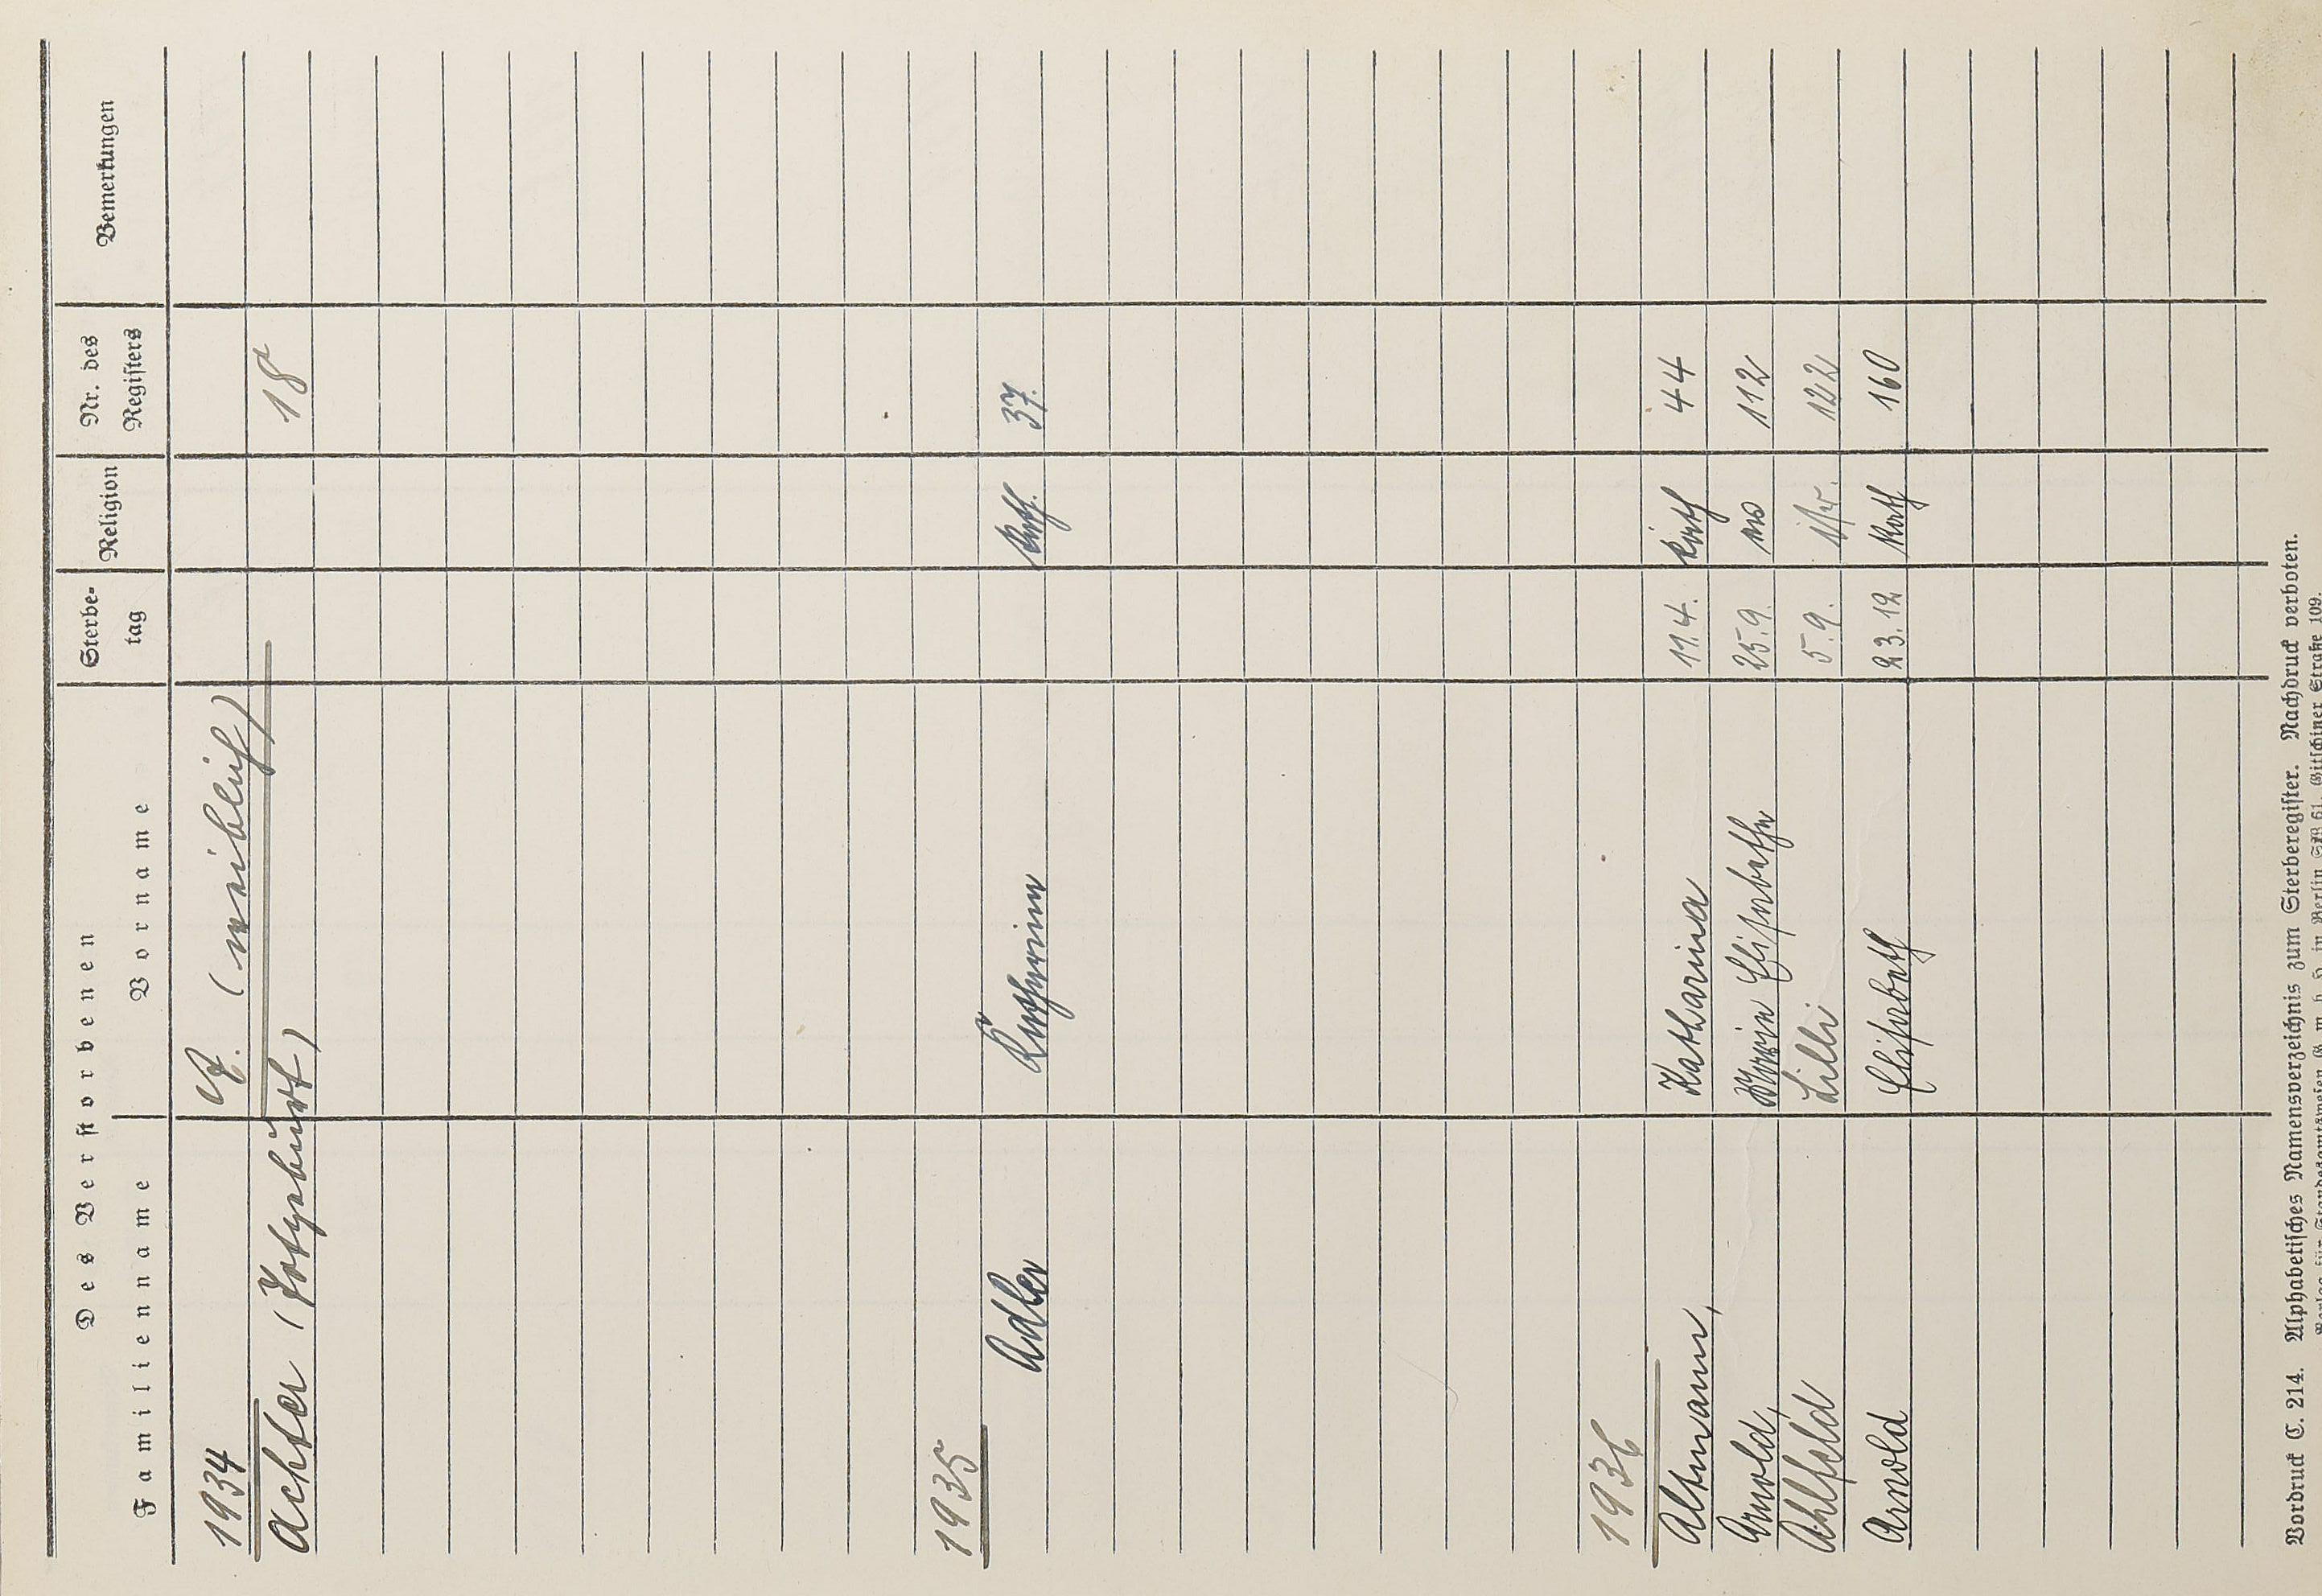 Des Verstorbenen Sterbe- Religion Nr. des Bemerkungen
Familienname Vorname tag Registers
1934 A. (weiblich)
Achter (Totgeburt) 18
1935
Adler Katharina kath. 37.
1936
Altmann, Katharina kath 44 11.4.
Arnold, Maria Elisabetha 25.9. 112
Ahlfeld Lilli 5.9. isr. 122
Arnold Elisabeth 23.12 kath 160
Vordruck C. 214. Alphabetisches Namensverzeichnis zum Sterberegister. Nachdruck verboten.
Verlag für Standesamtswesen G. m. b. H. in Berlin SW 61, Gitschiner Straße 109.